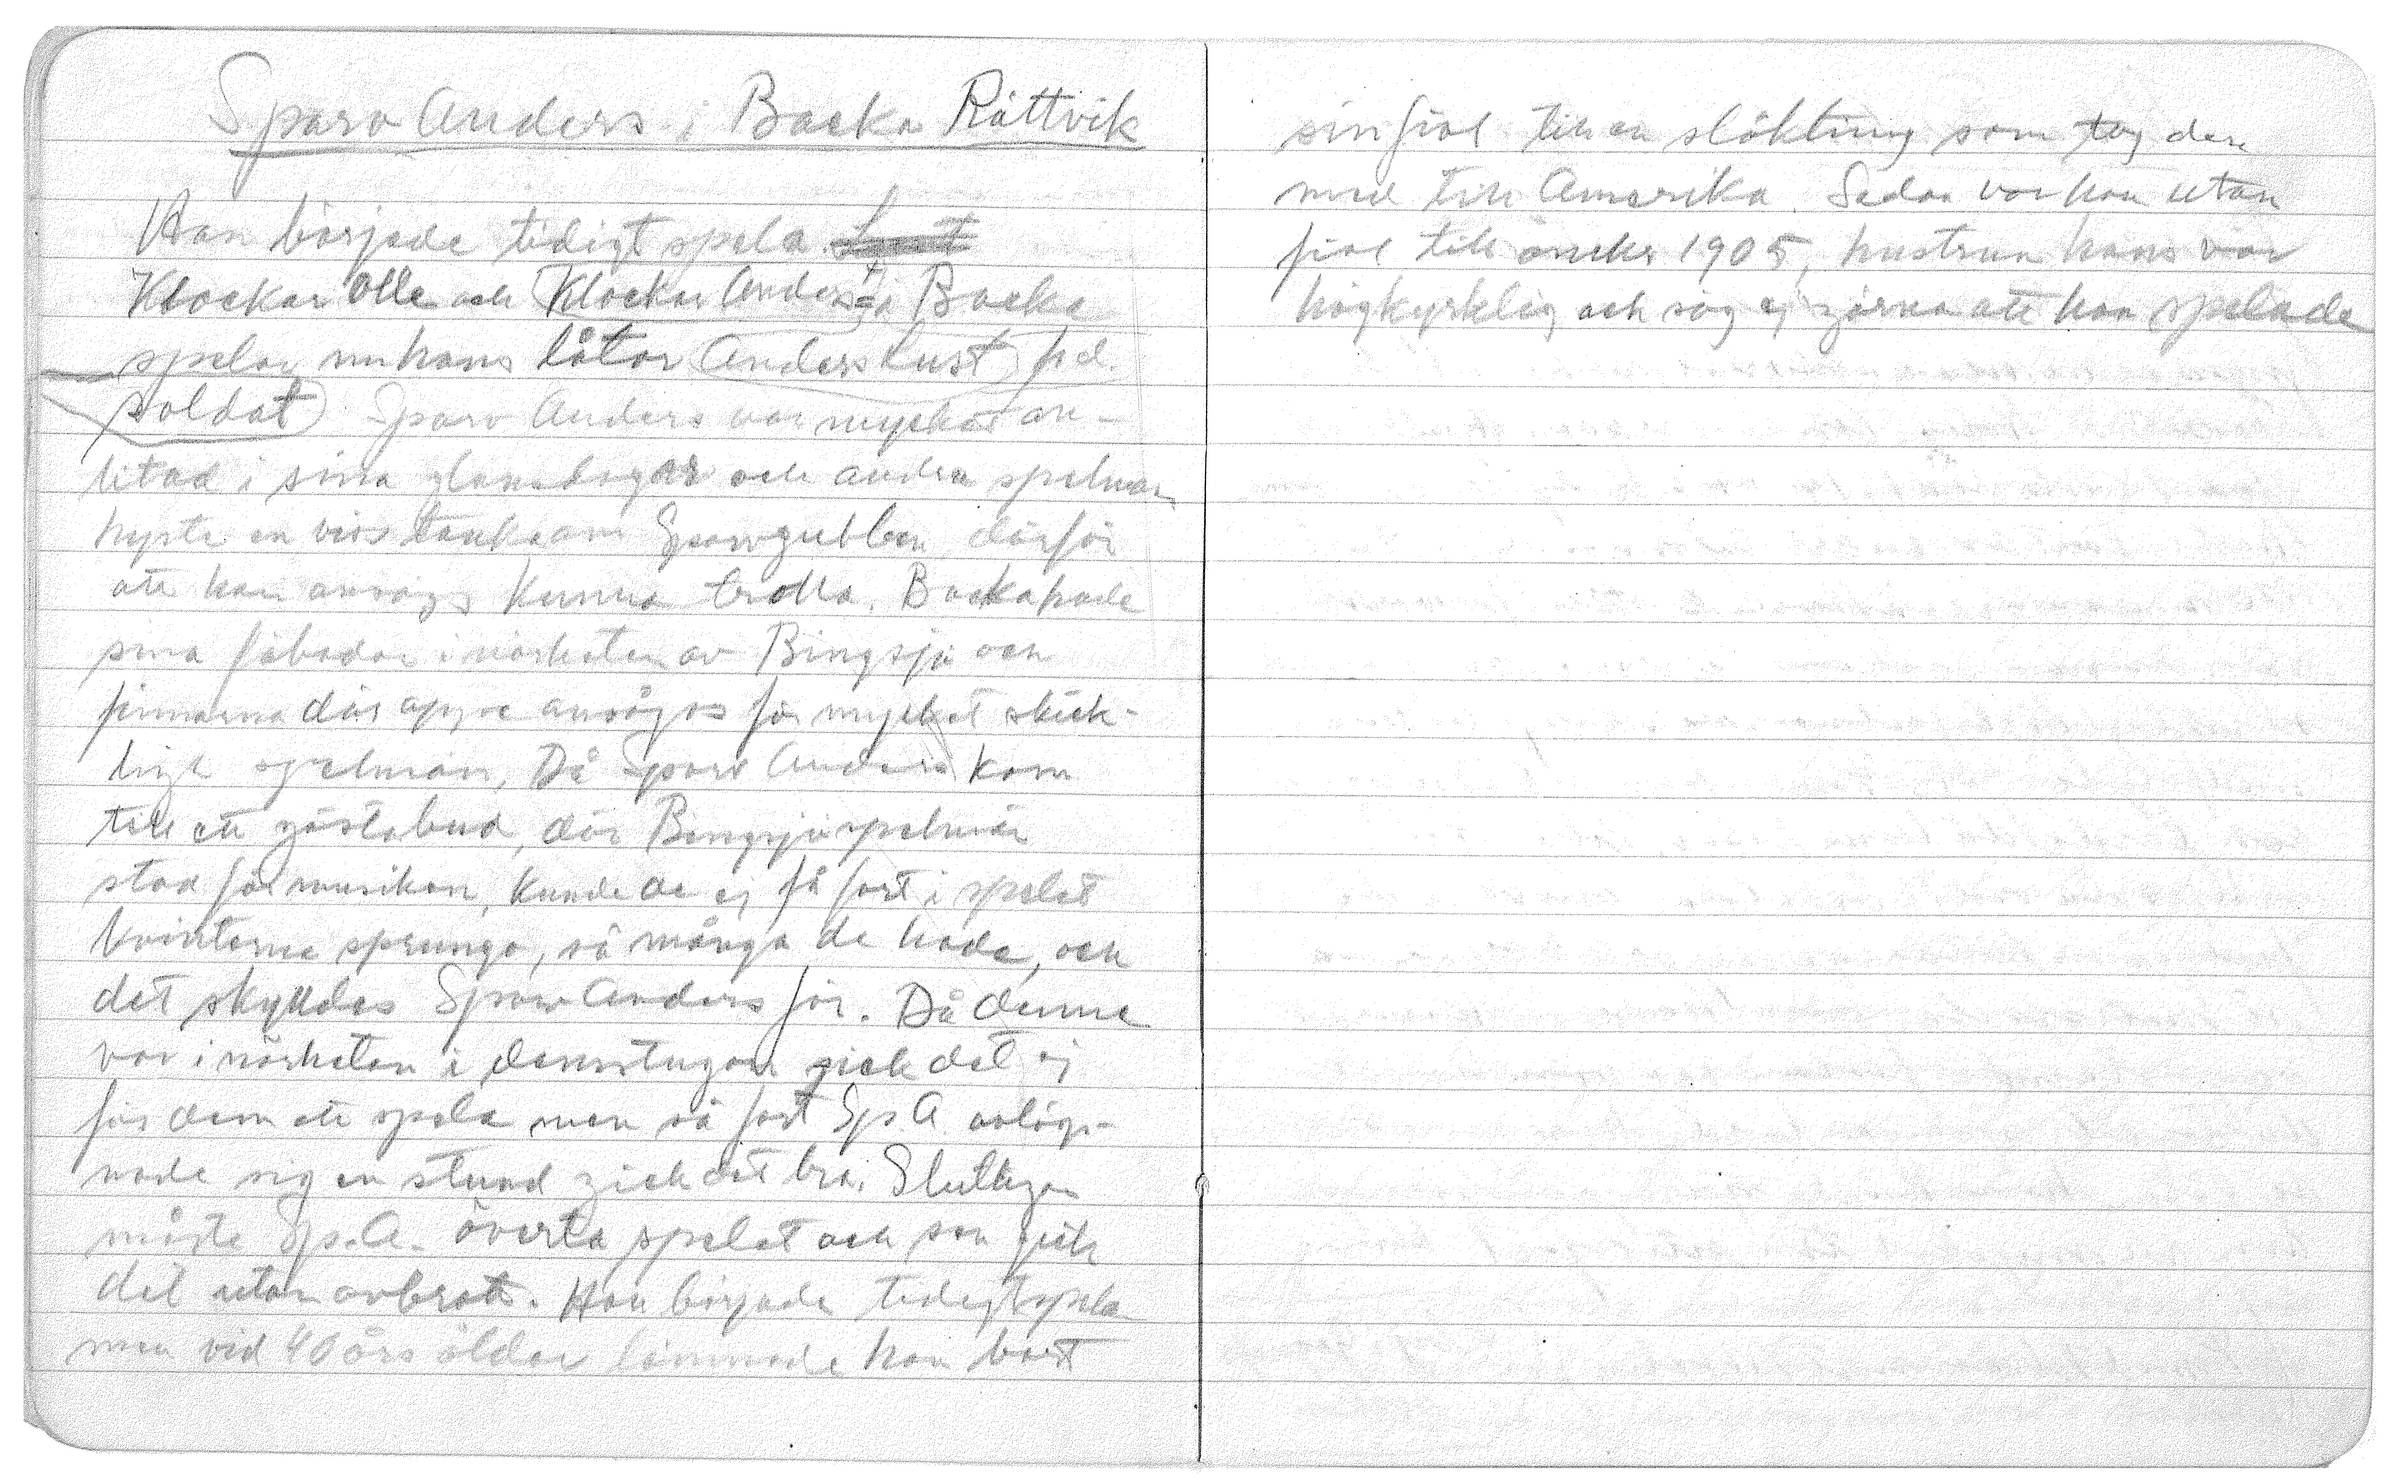 Sparv Anders i Backa Rättvik
Han började tidigt spela.
Klockar Olle och Klockar Anders i Backa
spelar nu hans låtar Anders Lust f.d.
soldat Sparv Anders var mycket an-
litad i sina glansdagar och andra spelmän
hyste en viss tanke om Sparvgubben därför
att han ansågs kunna trolla. Backa hade
sina fäbodar i närheten av Bingsjö och
finnarna där uppe ansågos för mycket skick-
liga spelmän. Då Sparv Anders kom
till ett gästabud, där Bingsjöspelmän
stod för musiken, kunde de ej få fart i spelet
Kvinterna sprungo, så många de hade, och
det skylldes Sparv Anders för. Då denne
var i närheten i dansstugan gick det ej
för dem att spela men så fort Sp. A. avlägs-
nade sig en stund gick det bra. Slutligen
måste Sp. A. överta spelet och sen gick
det utan avbrott. Han började tidigt spela
men vid 40 års ålder lämnade han bort
sin fiol till en släkting som tog den
med till Amerika. Sedan var han utan
fiol till 1905, hustrun hans var
högkyrklig och såg ej gärna att han spelade